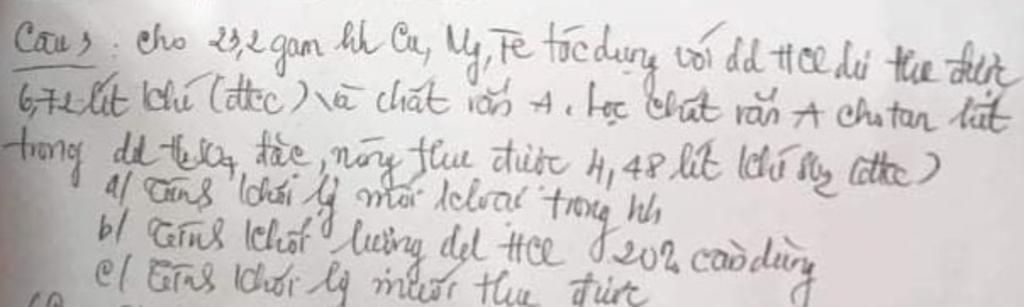 Câu 3 : cho 23,2 gam hh Cu, Mg, Fe tác dụng với dd HCl dư thu được
6,72 lít khí (đktc) và chất rắn A. Lọc chất rắn A cho tan hết
trong dd H₂SO₄ đặc, nóng thu được 4,48 lít khí SO₂ (đktc)
a/ Tính khối lg mỗi kloại trong hh
b/ Tính khối lượng dd HCl 20% cần dùng
c/ Tính khối lg muối thu được